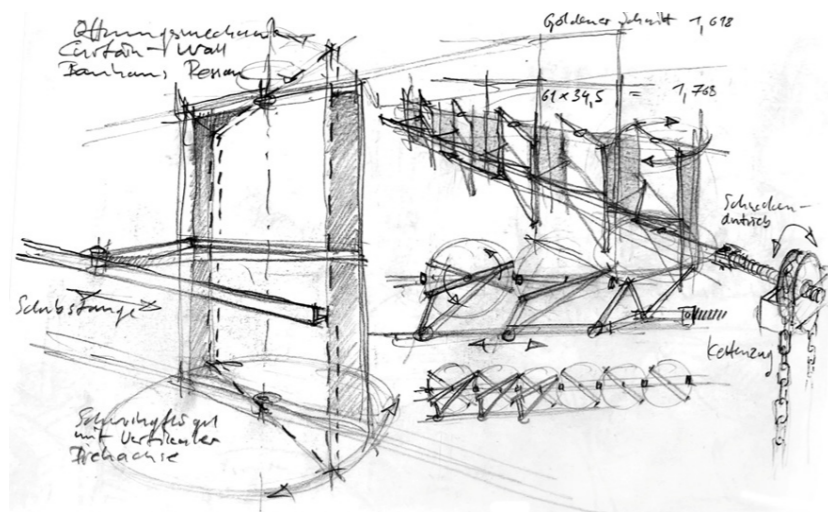 Öffnungsmechanik
Curtain-Wall
Bauhaus Dessau
Goldener Schnitt 1,618
61 x 34,5 = 1,768
Schnecken-
antrieb
Schubstange
Kettenzug
Schwingflügel
mit vertikaler
Drehachse